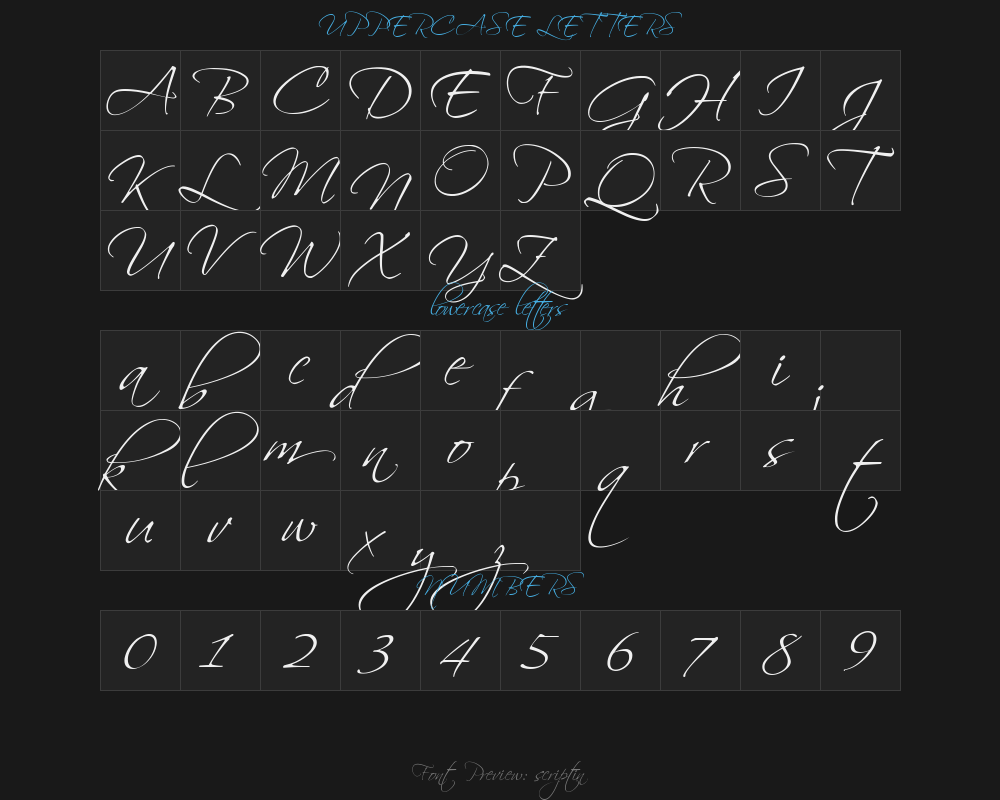 UPPERCASE LETTERS
A B C D E F G H I J
K L M N O P Q R S T
U V W X Y Z
lowercase letters
a b c d e f g h i j
k l m n o p q r s t
u v w x y z
NUMBERS
0 1 2 3 4 5 6 7 8 9
Font Preview: scriptin